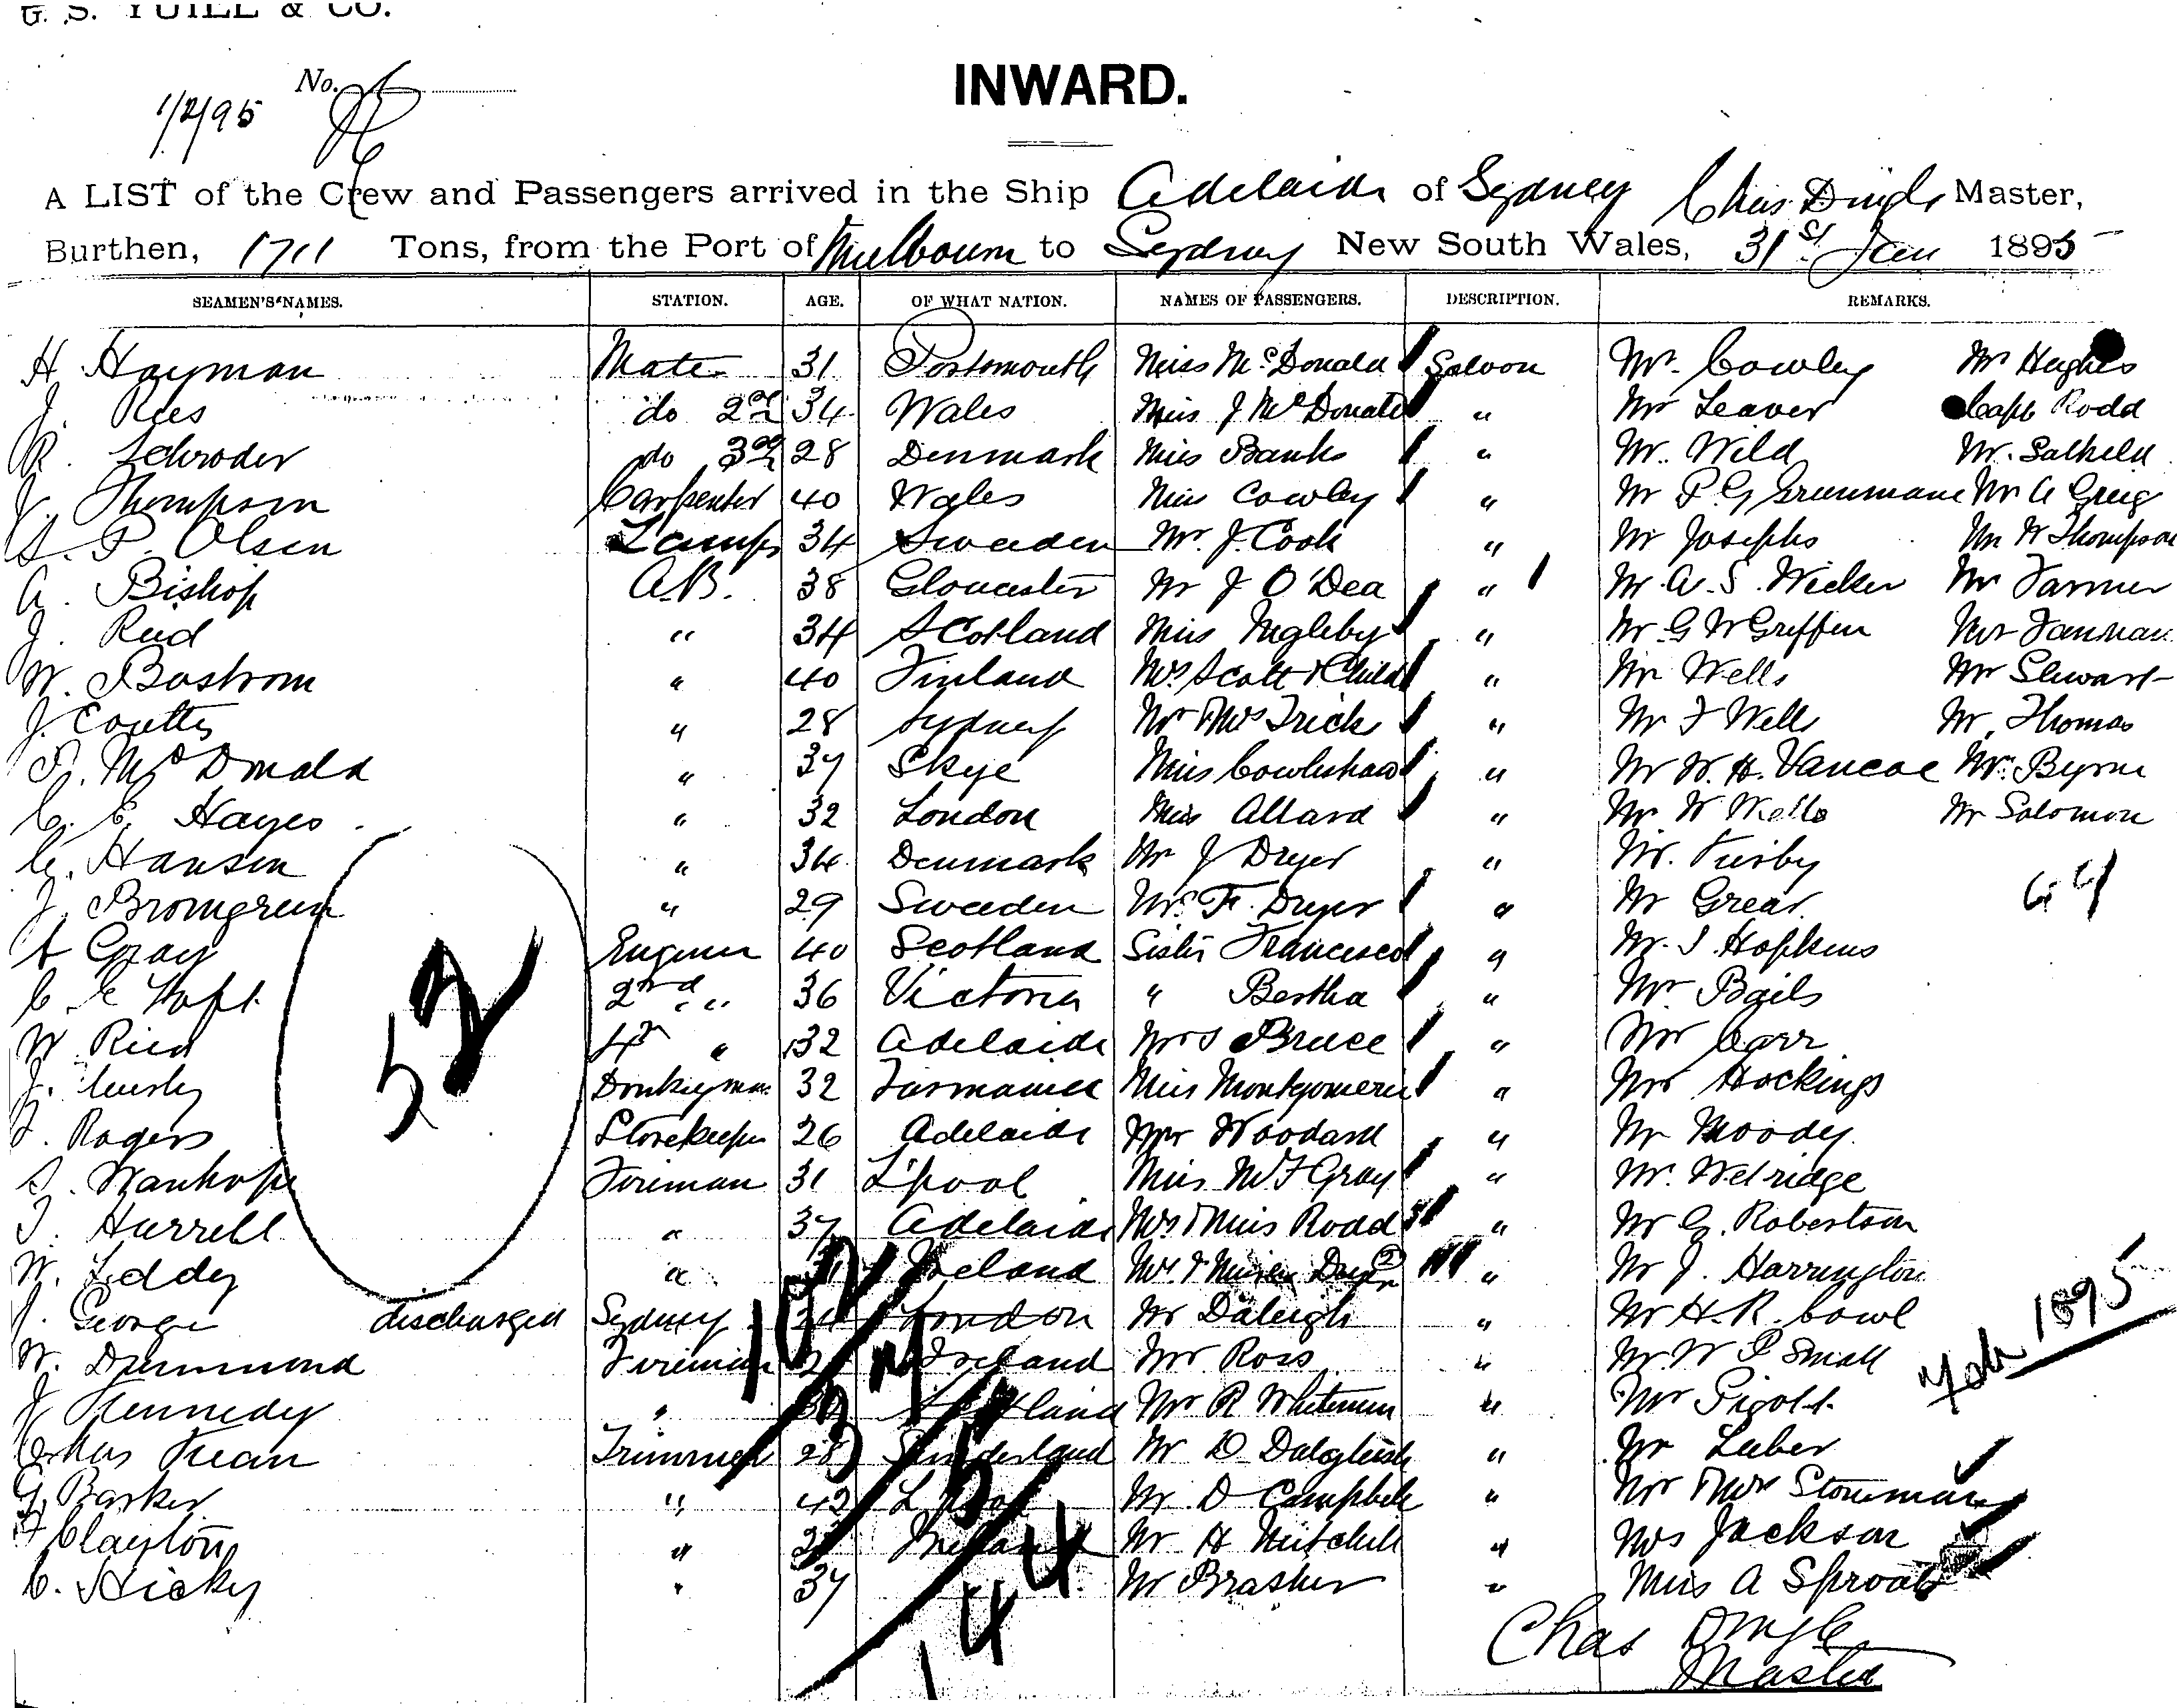 G. S. YUILL & CO.
No.
1/2/95
INWARD.
A LIST of the Crew and Passengers arrived in the Ship Adelaide of Sydney Chas Dingle Master,
Burthen, 1711 Tons, from the Port of Melbourn to Sydney New South Wales, 31st Jan 1895
SEAMEN'S NAMES. STATION. AGE. OF WHAT NATION. NAMES OF PASSENGERS. DESCRIPTION. REMARKS.
H Hayman Mate 31 Portsmouth Miss McDonald Saloon Mr Cowley Mr Hughes
J. Rees do 2nd 34 Wales Miss J McDonald " Mr Leaver Capt Rodd
R. Schroder do 3rd 28 Denmark Miss Banks " Mr. Wild Mr. Salkeld
J. Thompson Carpenter 40 Wales Miss Cowley " Mr P. G Mr A Greig
S. P. Olsen Lamps 34 Sweeden Mr. J. Cook " Mr Josephs Mr W Thompson
A. Bishop A.B. 38 Gloucester Mr J O'Dea " Mr. A. S. Wicker Mr Farmer
J. Reid " 34 Scotland Miss Ingleby " Mr G W Griffen
W. Bostrom " 40 Finland Mrs Scott & Child " Mr Wells Mr Stewart
J. Coutts " 28 Sydney Mr & Mrs Trick " Mr F Wells Mr. Thomas
McDonald " 37 Skye Miss Cowlishaw " Mr W. H. Vancoe Mr. Byrne
C. E. Hayes " 32 London Miss Allard " Mr W Wells Mr Solomon
C. Hansen " 34 Denmark Mr J Dryer "
J. Bromgreen " 29 Sweeden Mrs F. Dryer " Mr Grear 64
A Gray Engineer 40 Scotland Sister Francesca " Mr. S. Hopkins
C 2nd " 36 Victoria " Bertha " Mr Bails
W. Ried 4th " 32 Adelaide Mrs Bruce " Mr Carr
J. Donkeyman 32 Tasmania Miss Montgomerie " Mr Hockings
52
F. Rogers Storekeeper 26 Adelaide Mr Woodard " Mr Moody
S. Wanhope Fireman 31 L'pool Miss M F Gray " Mr. Welridge
T. Hurrell " 37 Adelaide Mrs & Miss Rodd " Mr G. Robertson
W. Liddy " Ireland Mrs & Misses Dryer " Mr J. Harrington
J. George discharged Sydney London Mr Daleigh " Mr H. R. Cowl
W. Drummond Fireman Ireland Mr Ross " Mr. W P Small
J Kennedy " Scotland Mr R Whiteman " Mr Pigott
Kean Trimmer 28 Sunderland Mr D Dalgliesh " Mr Luber
G. Barker " 42 L'pool Mr. D Campbell " Mr & Mrs
F Clayton " Mr H Mitchell " Mrs Jackson
C. Hicky " 37 Mr Brasher " Miss A Sproat
1895
144
Chas Dingle
Master